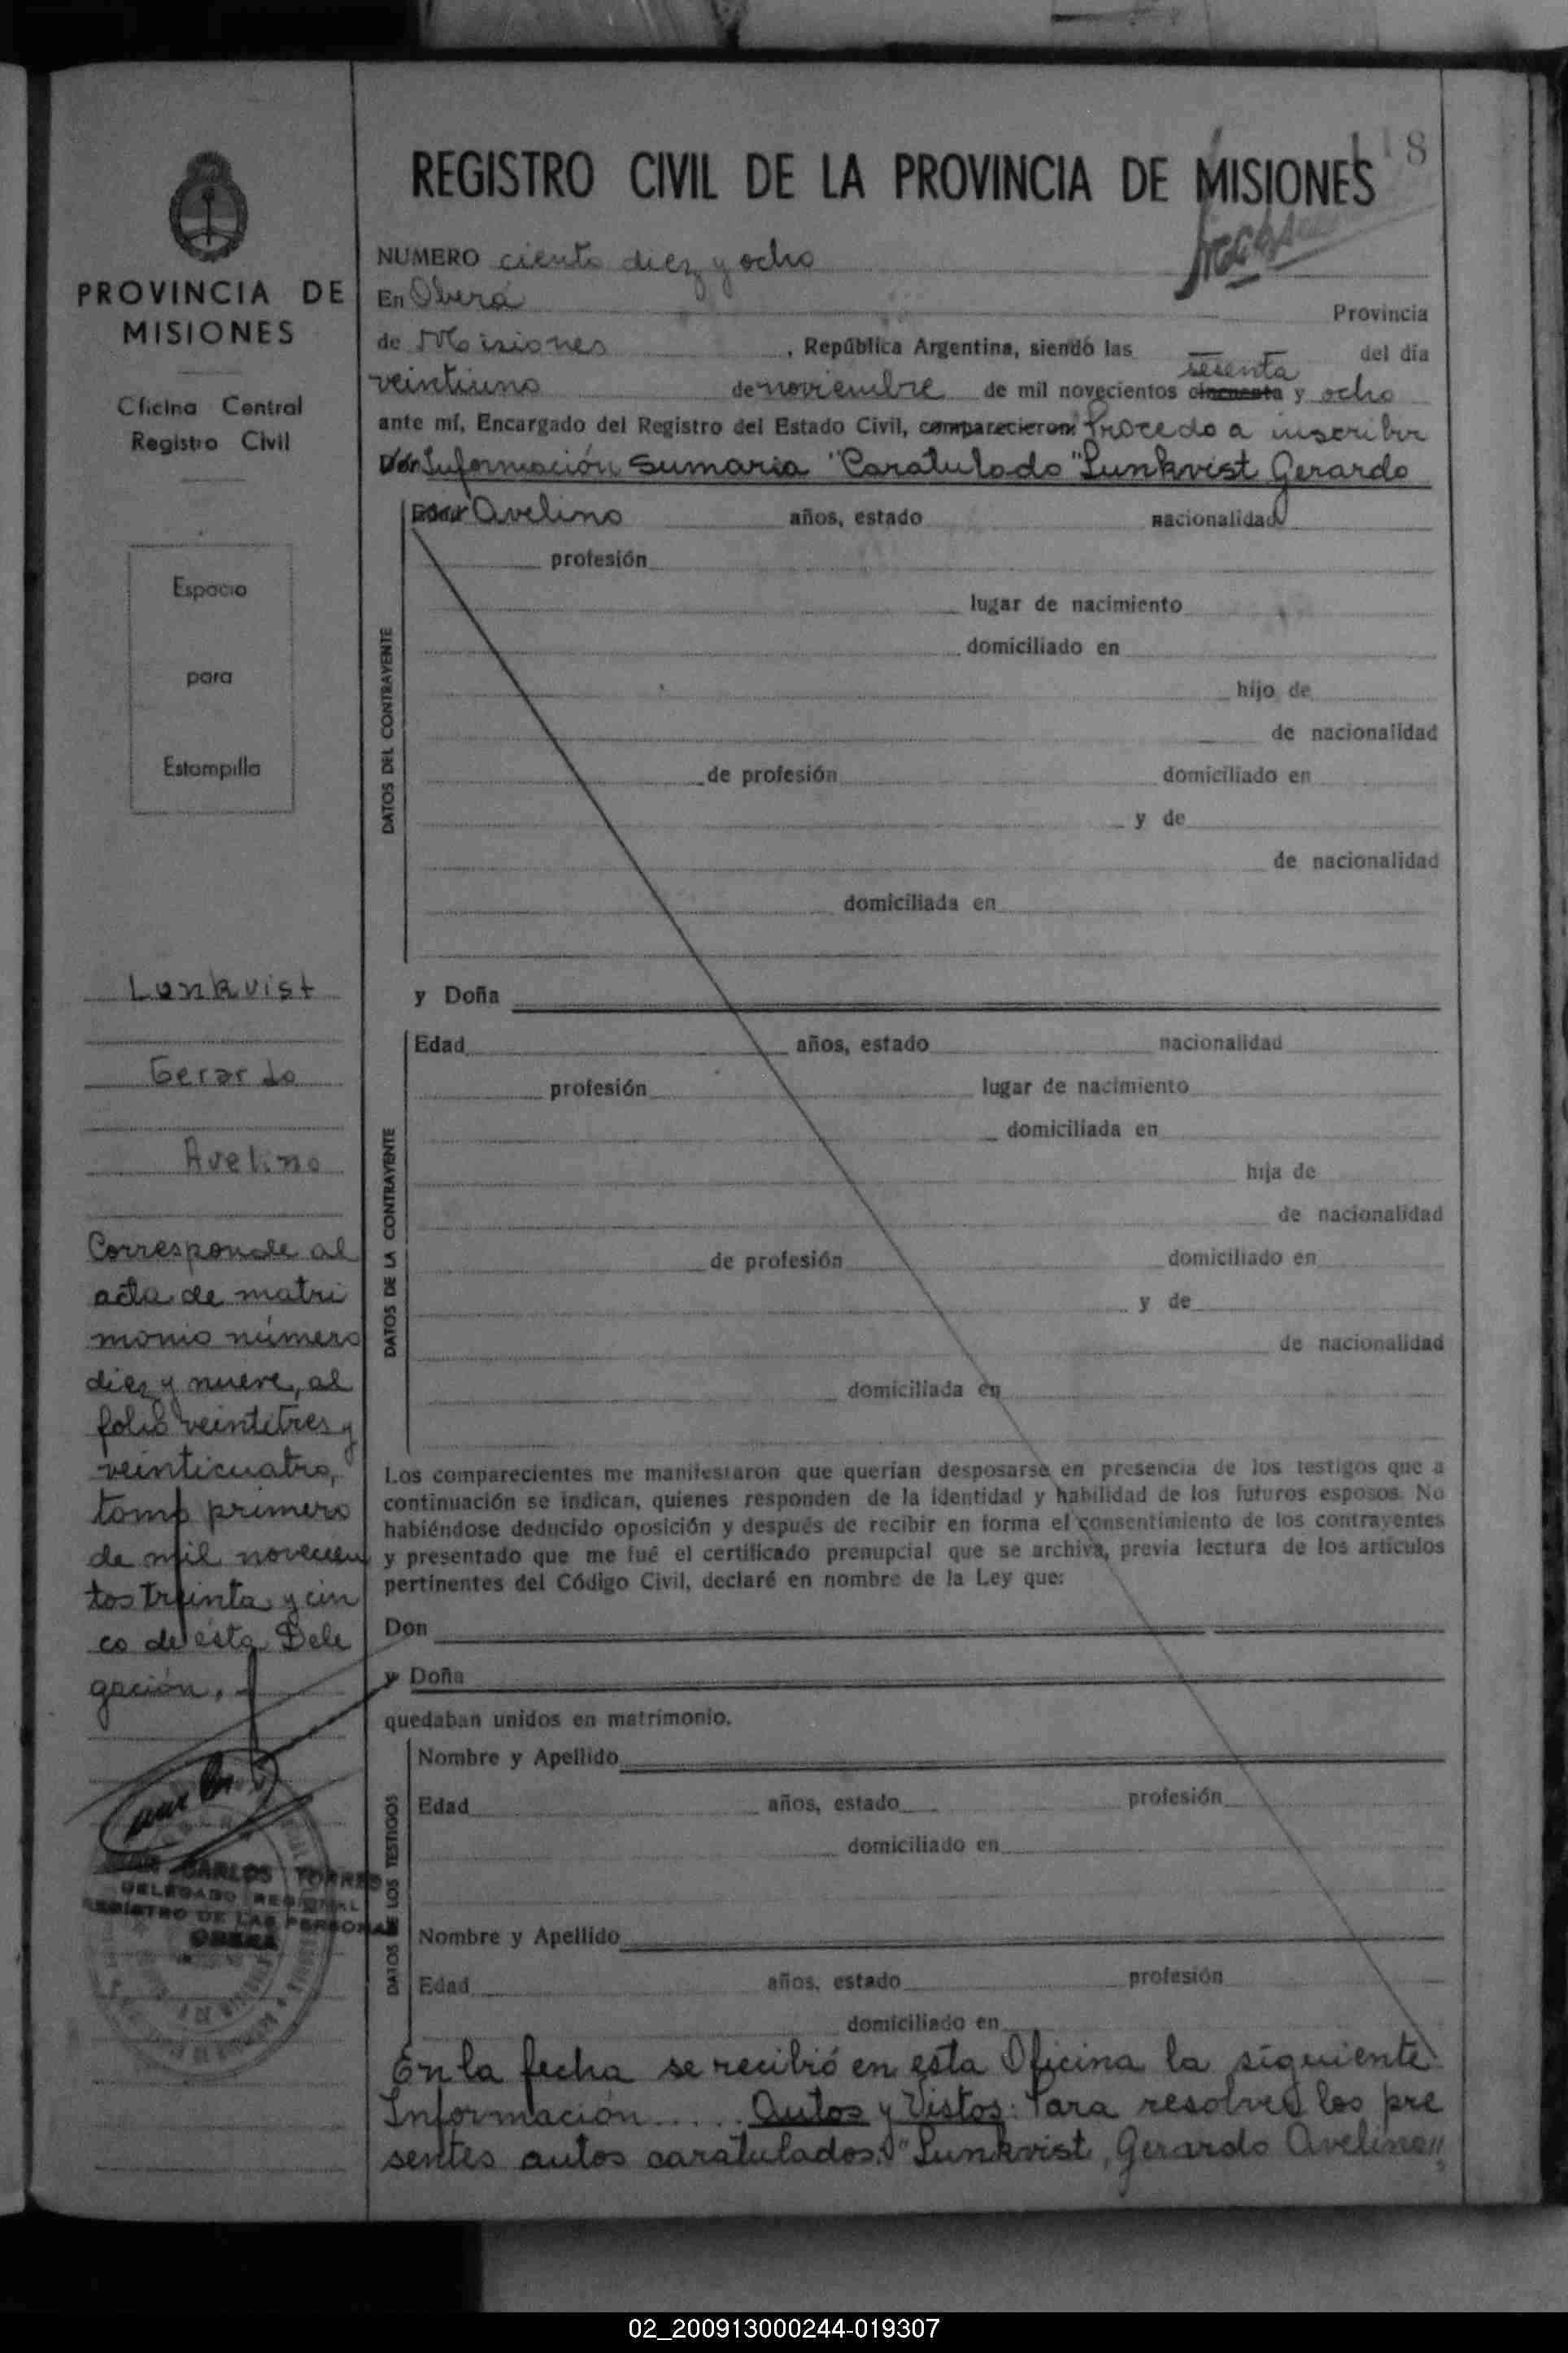 118
REGISTRO CIVIL DE LA PROVINCIA DE MISIONES
NUMERO ciento diez y ocho
En Oberá Provincia
de Misiones, República Argentina, siendo las — — del día
sesenta
veintiuno de noviembre de mil novecientos cincuenta y ocho
ante mí, Encargado del Registro del Estado Civil, comparecieron: Procedo a inscribir
Don Información Sumaria "Caratulado "Lunkvist Gerardo
Edad Avelino años, estado nacionalidad
profesión
lugar de nacimiento
domiciliado en
hijo de
de nacionalidad
de profesión domiciliado en
y de
de nacionalidad
domiciliada en
DATOS DEL CONTRAYENTE
y Doña
Edad años, estado nacionalidad
profesión lugar de nacimiento
domiciliada en
hija de
de nacionalidad
de profesión domiciliado en
y de
de nacionalidad
domiciliada en
DATOS DE LA CONTRAYENTE
Los comparecientes me manifestaron que querían desposarse en presencia de los testigos que a
continuación se indican, quienes responden de la identidad y habilidad de los futuros esposos. No
habiéndose deducido oposición y después de recibir en forma el consentimiento de los contrayentes
y presentado que me fué el certificado prenupcial que se archiva, previa lectura de los artículos
pertinentes del Código Civil, declaré en nombre de la Ley que:
Don
y Doña
quedaban unidos en matrimonio.
Nombre y Apellido
Edad años, estado profesión
domiciliado en
Nombre y Apellido
Edad años, estado profesión
domiciliado en
DATOS DE LOS TESTIGOS
En la fecha se recibió en esta Oficina la siguiente
Información..... Autos y Vistos: Para resolver los pre
sentes autos caratulados: "Lunkvist, Gerardo Avelino"
PROVINCIA DE
MISIONES
Oficina Central
Registro Civil
Espacio
para
Estampilla
Lunkvist
Gerardo
Avelino
Corresponde al
acta de matri
monio número
diez y nueve, al
folio veintitres y
veinticuatro,
tomo primero
de mil novecien
tos treinta y cin
co de ésta Dele
gación.
JUAN CARLOS TORRES
DELEGADO REGIONAL
REGISTRO DE LAS PERSONAS
OBERA
02_200913000244-019307